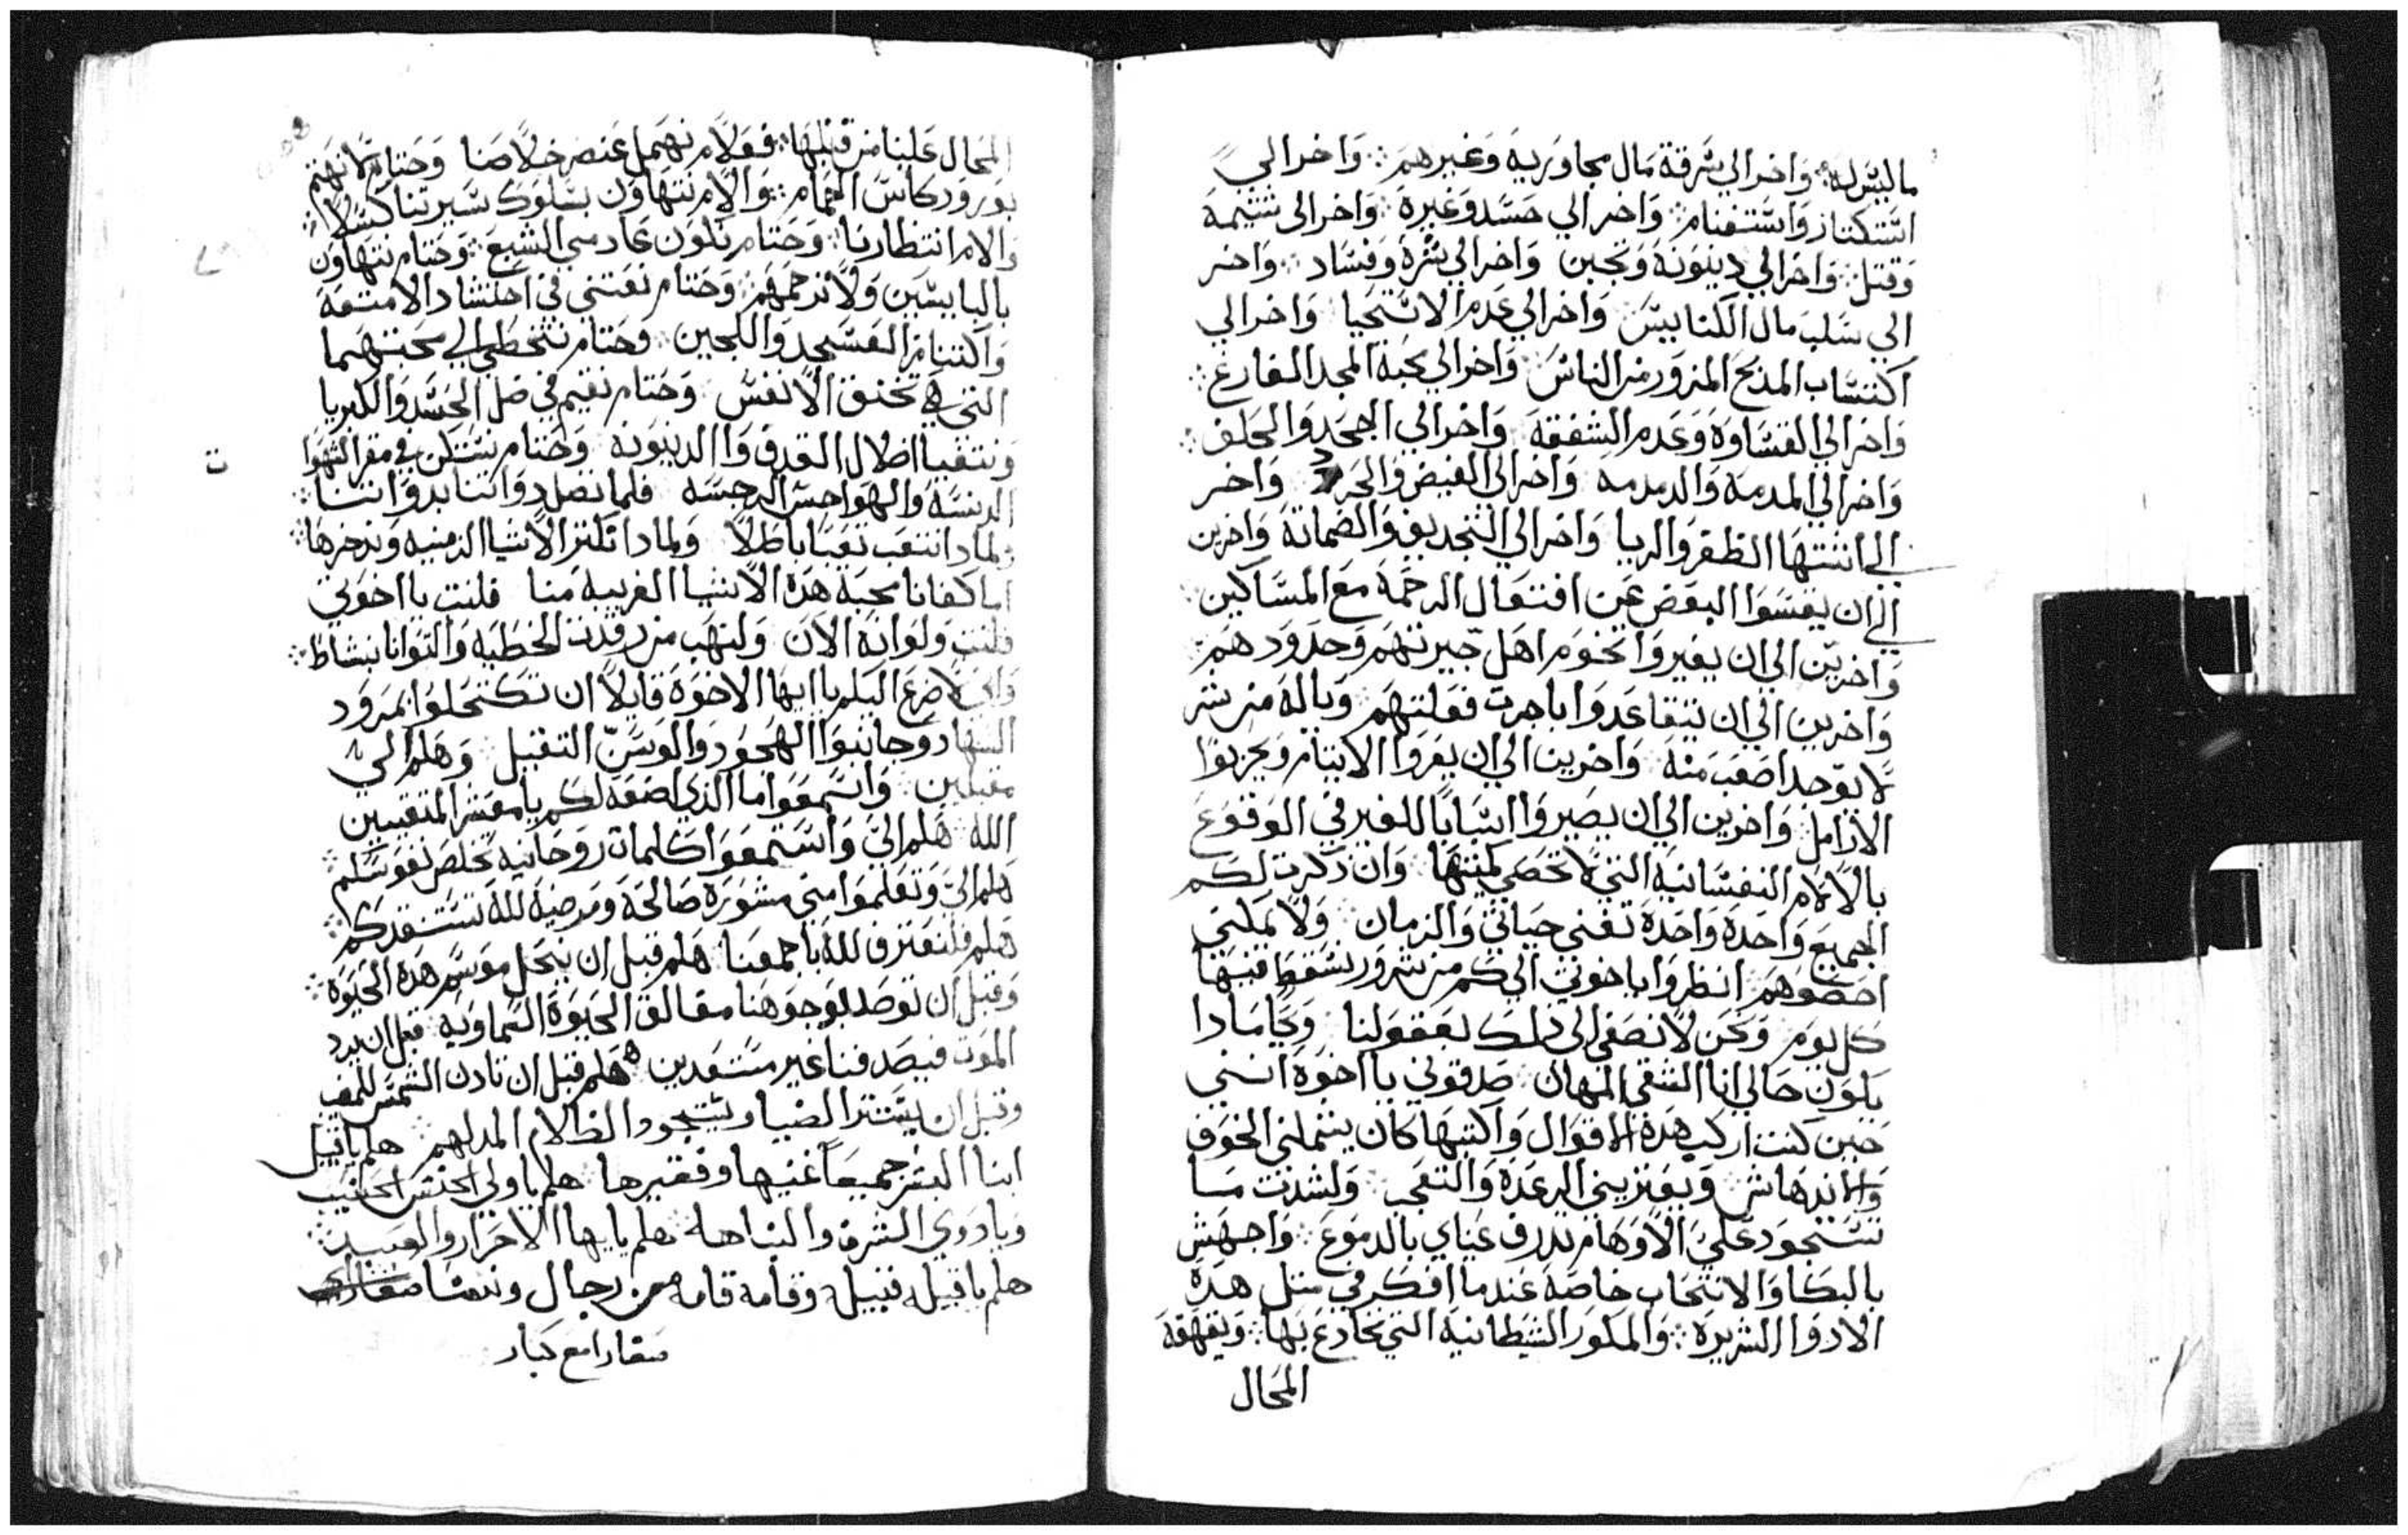 ما ليس له ⁘ واخر الي سرقة مال مجاوريه وغيرهم ⁘ واخر الي
استكتار واستغنام ⁘ واخر الي حسد وغيرة ⁘ واخر الي شتيمة
وقتل ⁘ واخر الي دينونة وتجبن واخر الي شره وفساد ⁘ واخر
الي سلب مال الكنايس واخر الي عدم الاستحيا واخر الي
اكتساب المديح المزور من الناس واخر الي محبة المجد الفارغ ⁘
واخر الي القساوة وعدم الشفقة واخر الي الجحد والحلف ⁘
واخر الي المدمة والدمدمه واخر الي الغيض والحرد واخر
الي انتها الظفر والربا واخر الي التجديف والضماتة واخرين
الي ان يقسوا البعض عن افتعال الرحمة مع المساكين ⁘
واخرين الي ان يغيروا تخوم اهل جيرتهم وحدودهم
واخرين الي ان يتقاعدوا باجرت فعلتهم وياله من شر
لا يوجد اصعب منه واخرين الي ان يغروا الايتام ويحزنوا
الارامل واخرين الي ان يصيروا اسبابا للغير في الوقوع
بالالام النفسانية التي لا تحصي كميتها وان ذكرت لكم
الجميع واحدة واحدة تفني حياتي والزمان ولا يمكنني
احصوهم انظروا يا خوتي الي كم من شرور نسقط فيها
كل يوم ونحن لا نصغي الي ذلك بعقولنا ويا مادا
يكون حالي انا الشقي المهان صدقوني يا اخوة انني
حين كنت اركب هذه الاقوال واكتبها كان يشملني الخوف
والاندهاش ويعتريني الرعدة والتعب ولشدت ما
تستحود علي الاوهام تدرف عيناي بالدموع واجهش
بالبكا والانتحاب خاصة عندما افكر في متل هذه
الادوا الشريرة ⁘ والمكور الشيطانية التي يخادع بها ويقهقه
المحال
المحال علينا من قبلها ⁘ فعلام نهمل عنصر خلاصنا وحتام لا نهتم
بورود كاس الحمام ⁘ والام نتهاون بسلوك سيرتنا كسلا ⁘
والام انتظارنا ⁘ وحتام نكون عادمي الشبع ⁘ وحتام نتهاون
بالبايسين ولا نرحمهم ⁘ وحتام نعتني في احتشاد الامتعة
واكتنام العسجد واللجين وحتام نتخطي الي محبتهما
التي هي تخنق الانفس وحتام نقيم في ضل الحسد والكبريا
ونتفيا اظلال القدف والدينونة وحتام نستكن في مقر الشهوا
ت
الدنسة والهواجس الرجسه فلما نصل دواتنا بدواتنا ⁘
ولمادا نتعب تعبا باطلا ولمادا نكنز الاشيا الزمنيه وندخرها ⁘
اما كفانا محبة هذه الاشيا الغريبة منا فلنت يا اخوتي
فلنت ولو انه الان ولنهب من رقدت الخطية والتوانا بنشاط ⁘
واني لاضرع اليكم يا ايها الاخوة قايلا ان تكتحلوا بمرود
السهاد وجانبوا الهجود والوسن التقيل وهلم الي
مقبلين واسمعوا ما الذي اضعه لكم يا معشر المتقيين
الله هلم الي واستمعوا كلمات روحانية تخلص نفوسكم ⁘
هلم الي وتعلموا مني مشورة صالحة ومرضية لله تستنقدكم ⁘
هلم فلنعترف لله باجمعنا هلم قبل ان ينحل موسم هذه الحيوة ⁘
وقبل ان توصد بوجوهنا مغالق الحيوة السماوية قبل ان يرد
الموت فيصدفنا غير مستعدين هلم قبل ان تادن الشمس للمغيب
وقبل ان يستتر الضيا ويستحود الظلام المدلهم ⁘ هلم يا قبيل
ابنا البشر جميعا غنيها وفقيرها هلم يا ولي الجنس الحبيب
ويا دوي الشرف والنباهه هلم يا ايها الاحرار والعبيد ⁘
هلم يا قبيله قبيله وقامه قامه من رجال ونسا
صغارا مع كبار